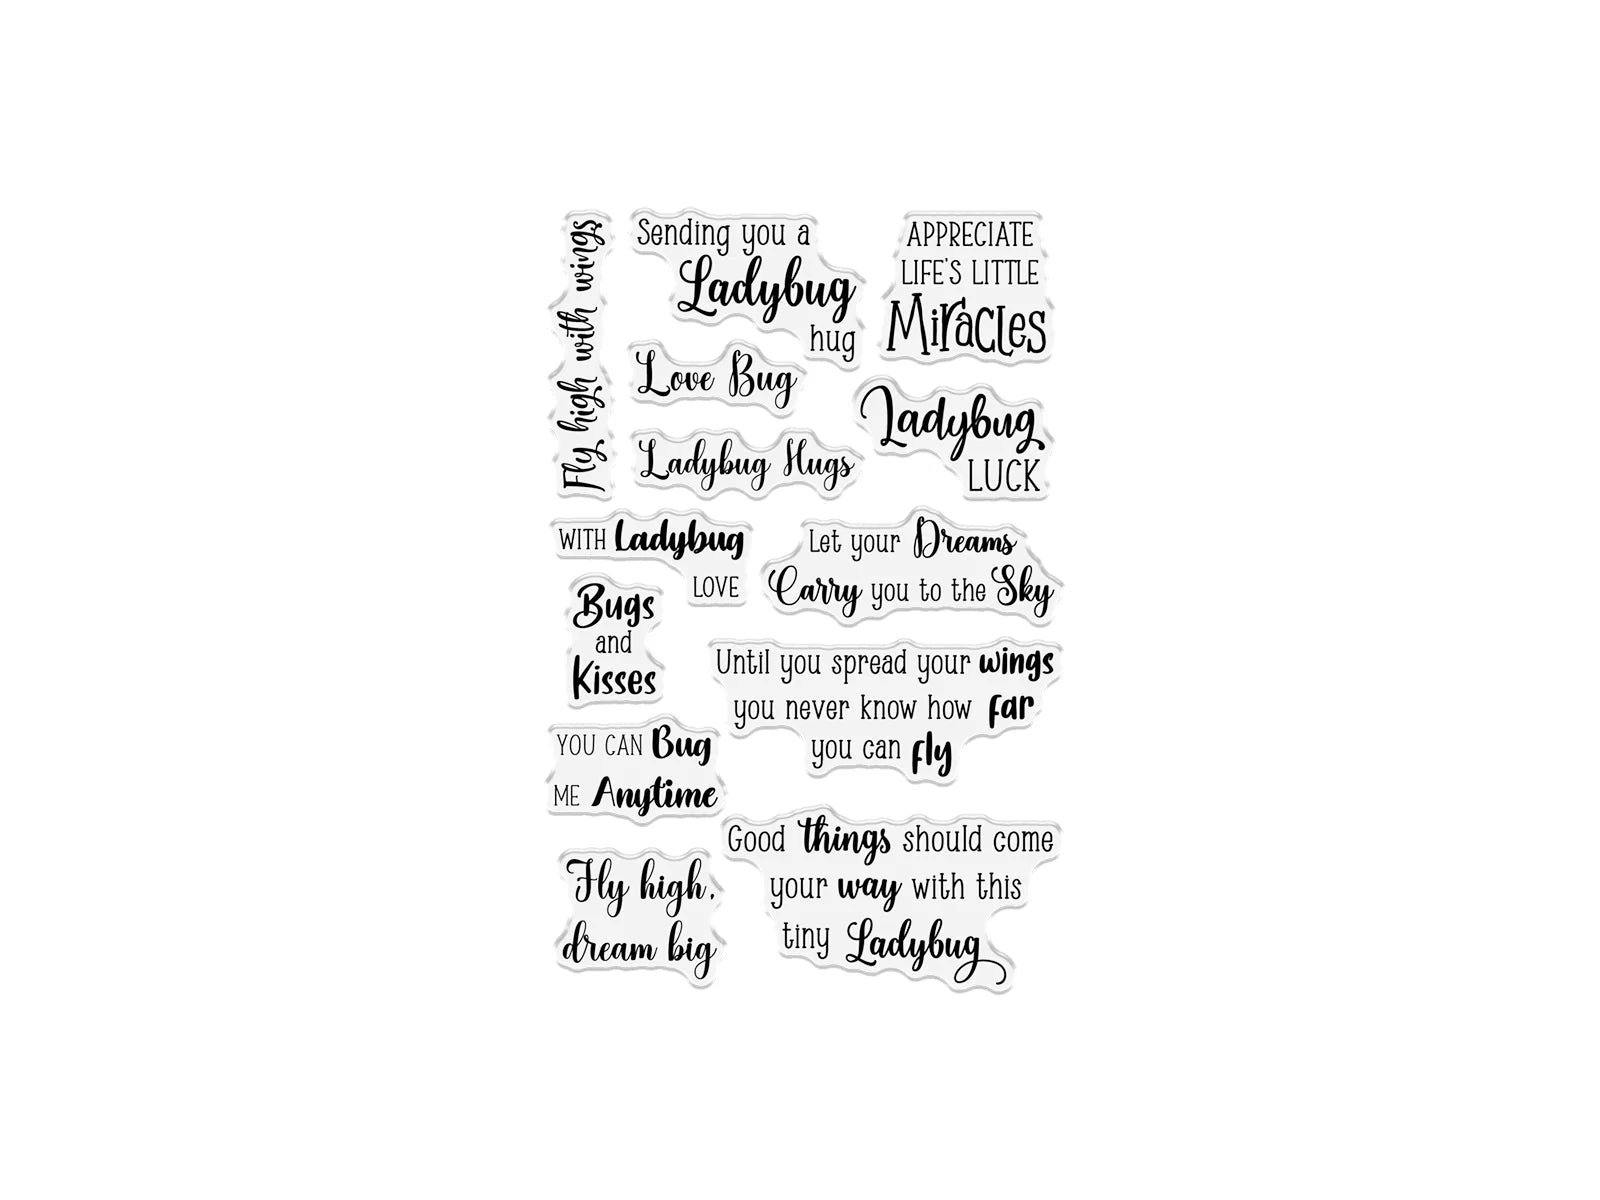 Fly high with wings
Sending you a
Ladybug
hug
APPRECIATE
LIFE'S LITTLE
Miracles
Love Bug
Ladybug Hugs
Ladybug
LUCK
WITH Ladybug
LOVE
Let your Dreams
Carry you to the Sky
Bugs
and
Kisses
Until you spread your wings
you never know how far
you can fly
YOU CAN Bug
ME Anytime
Good things should come
your way with this
tiny Ladybug
Fly high,
dream big